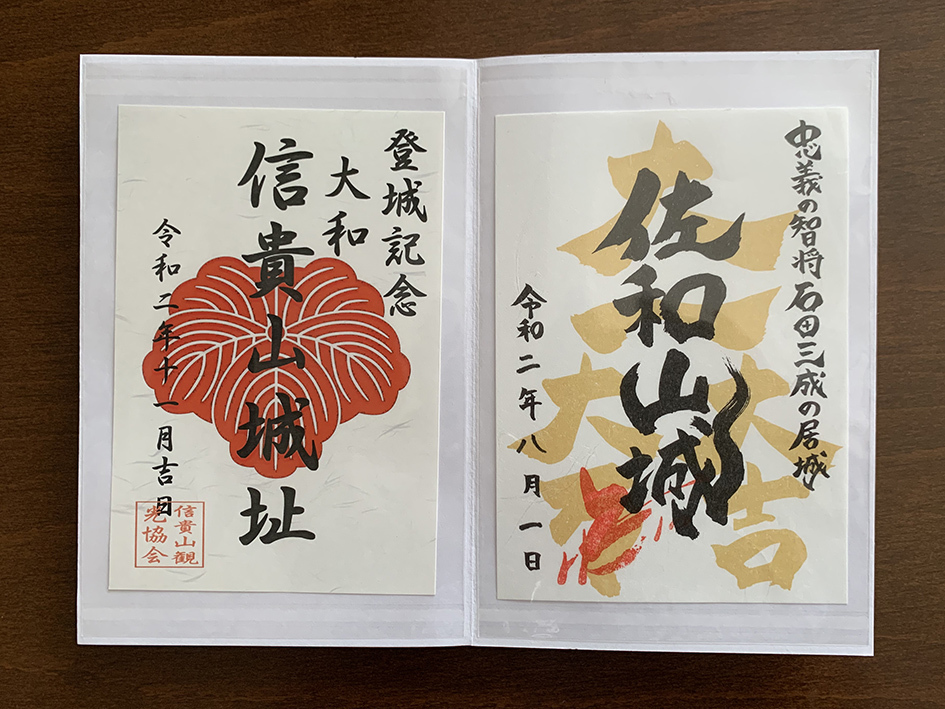 登城記念
大和
信貴山城址
令和二年十一月吉日
信貴山観
光協会
忠義の智将 石田三成の居城
佐和山城
令和二年八月一日
大吉